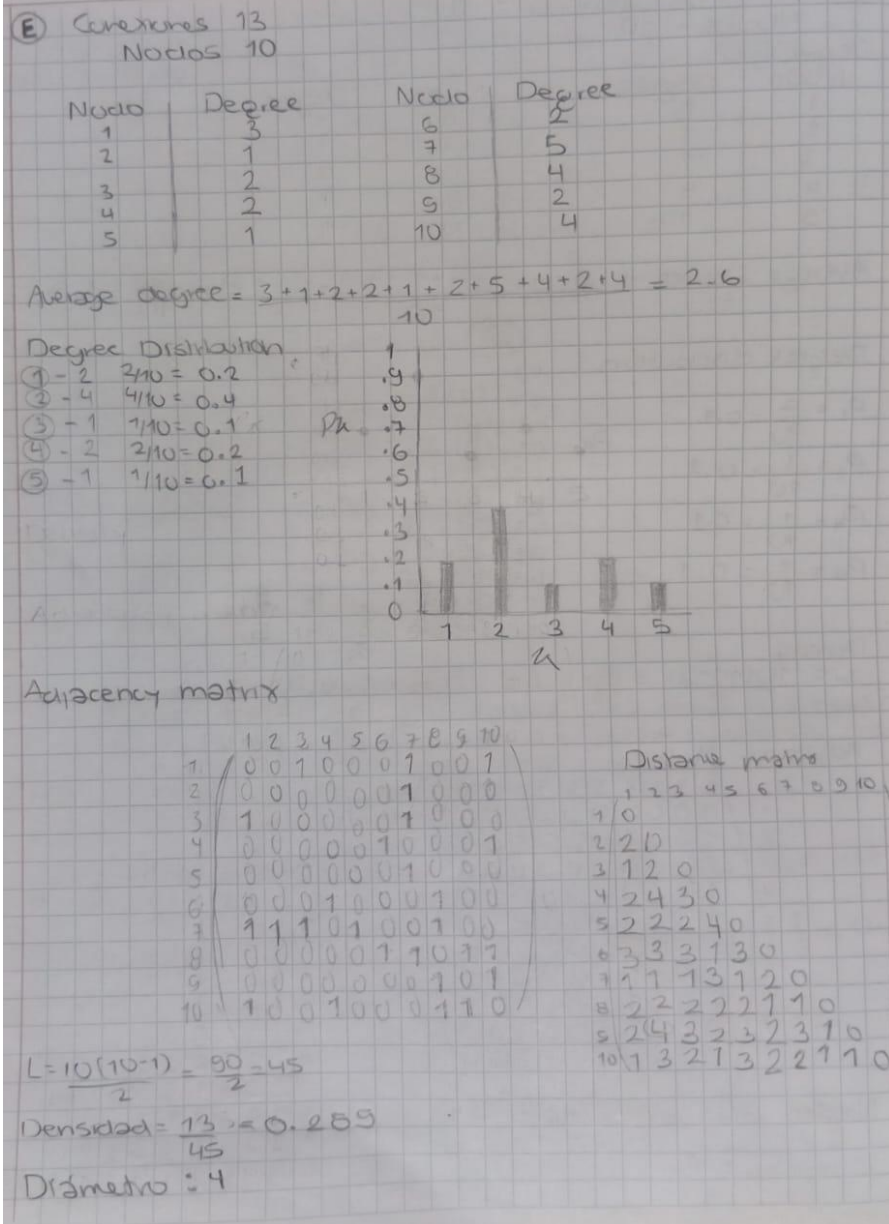 E Conexiones 13
Nodos 10
Nodo Degree
1 3
2 1
3 2
4 2
5 1
Nodo Degree
6 2
7 5
8 4
9 2
10 4
Average degree = 3+1+2+2+1+2+5+4+2+4 = 2.6
10
Degree Distribution
1 - 2 2/10 = 0.2
2 - 4 4/10 = 0.4
3 - 1 1/10 = 0.1
4 - 2 2/10 = 0.2
5 - 1 1/10 = 0.1
Pk
1
.9
.8
.7
.6
.5
.4
.3
.2
.1
0
1 2 3 4 5
k
Adjacency matrix
1 2 3 4 5 6 7 8 9 10
1 0 0 1 0 0 0 1 0 0 1
2 0 0 0 0 0 0 1 0 0 0
3 1 0 0 0 0 0 1 0 0 0
4 0 0 0 0 0 1 0 0 0 1
5 0 0 0 0 0 0 1 0 0 0
6 0 0 0 1 0 0 0 1 0 0
7 1 1 1 0 1 0 0 1 0 0
8 0 0 0 0 0 1 1 0 1 1
9 0 0 0 0 0 0 0 1 0 1
10 1 0 0 1 0 0 0 1 1 0
Distance matrix
1 2 3 4 5 6 7 8 9 10
1 0
2 2 0
3 1 2 0
4 2 4 3 0
5 2 2 2 4 0
6 3 3 3 1 3 0
7 1 1 1 3 1 2 0
8 2 2 2 2 2 1 1 0
9 2 4 3 2 3 2 3 1 0
10 1 3 2 1 3 2 2 1 1 0
L = 10(10-1) = 90 = 45
2 2
Densidad = 13 = 0.289
45
Diámetro : 4